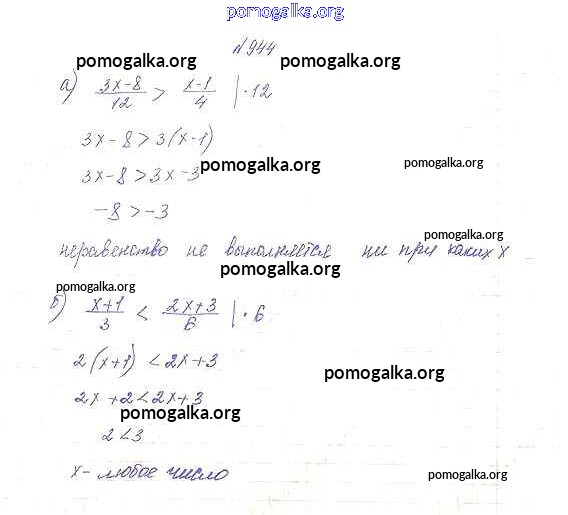 pomogalka.org
№944
pomogalka.org pomogalka.org
а) (3x-8)/12 > (x-1)/4 | · 12
3x - 8 > 3(x-1)
pomogalka.org pomogalka.org
3x-8 > 3x-3
-8 > -3
pomogalka.org
неравенство не выполняется ни при каких x
pomogalka.org
pomogalka.org
б) (x+1)/3 < (2x+3)/6 | · 6
2(x+1) < 2x+3
pomogalka.org
2x+2 < 2x+3
pomogalka.org
2 < 3
x - любое число
pomogalka.org